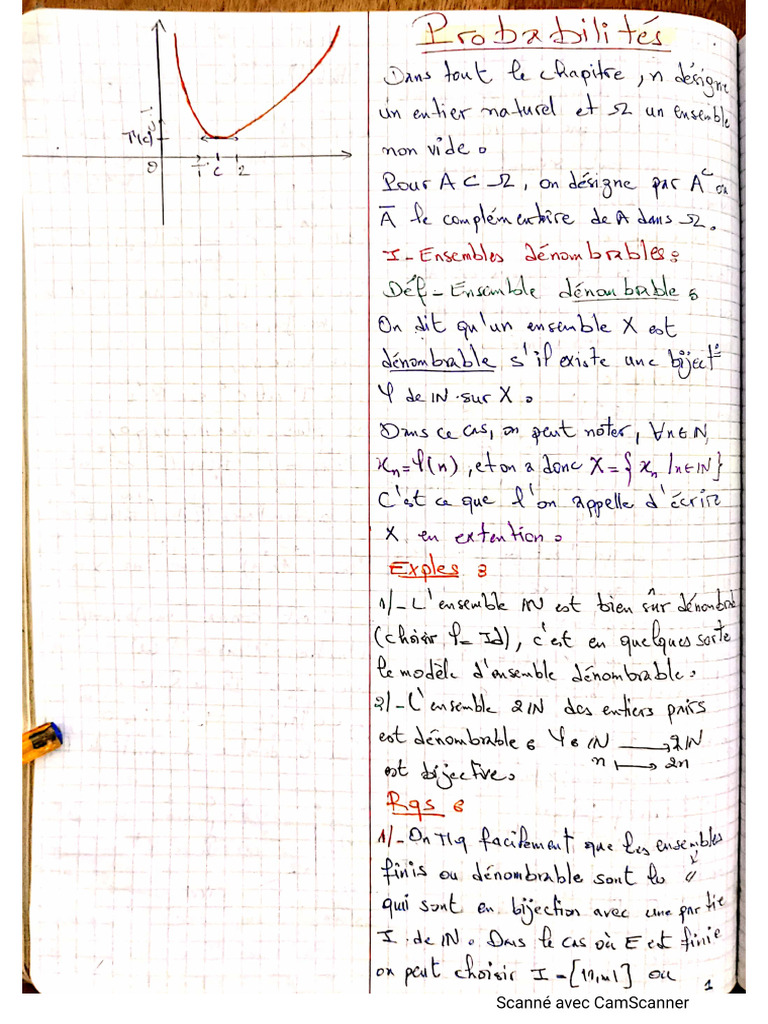 Γ(c)
0
1
c
2
Probabilités
Dans tout le chapitre, n désigne
un entier naturel et Ω un ensemble
non vide.
Pour A ⊂ Ω, on désigne par Aᶜ ou
Ā le complémentaire de A dans Ω.
I - Ensembles dénombrables :
Déf - Ensemble dénombrable :
On dit qu'un ensemble X est
dénombrable s'il existe une biject°
φ de IN sur X.
Dans ce cas, on peut noter, ∀n∈IN,
xₙ = φ(n), et on a donc X = { xₙ / n∈IN}
C'est ce que l'on appelle d'écrire
X en extention.
Exples :
1/- L'ensemble IN est bien sûr dénombrable
(choisir φ = Id), c'est en quelques sorte
le modèle d'ensemble dénombrable.
2/- L'ensemble 2IN des entiers pairs
est dénombrable : φ : IN → 2IN
n ↦ 2n
est bijective.
Rqs :
1/- On Mq facilement que les ensembles
finis ou dénombrable sont les "
qui sont en bijection avec une partie
I de IN. Dans le cas où E est finie
on peut choisir I = [|1,n|] ou
1
Scanné avec CamScanner